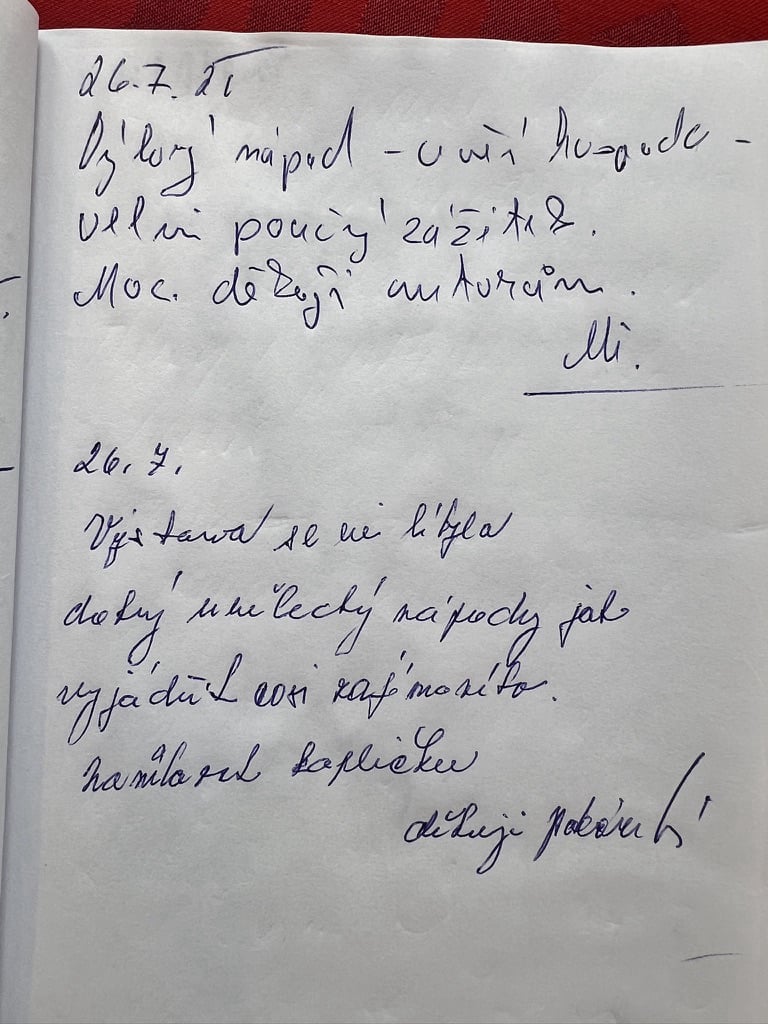 26.7. 21
nápad - u vsí hospodo -
velmi poučný zážitek.
Moc děkuji autorům.
Mi.
26.7.
Výstava se mi líbyla
dobrý umělecký nápady jak
vyjádřit cosi zajímavího.
kapličku
děkuji